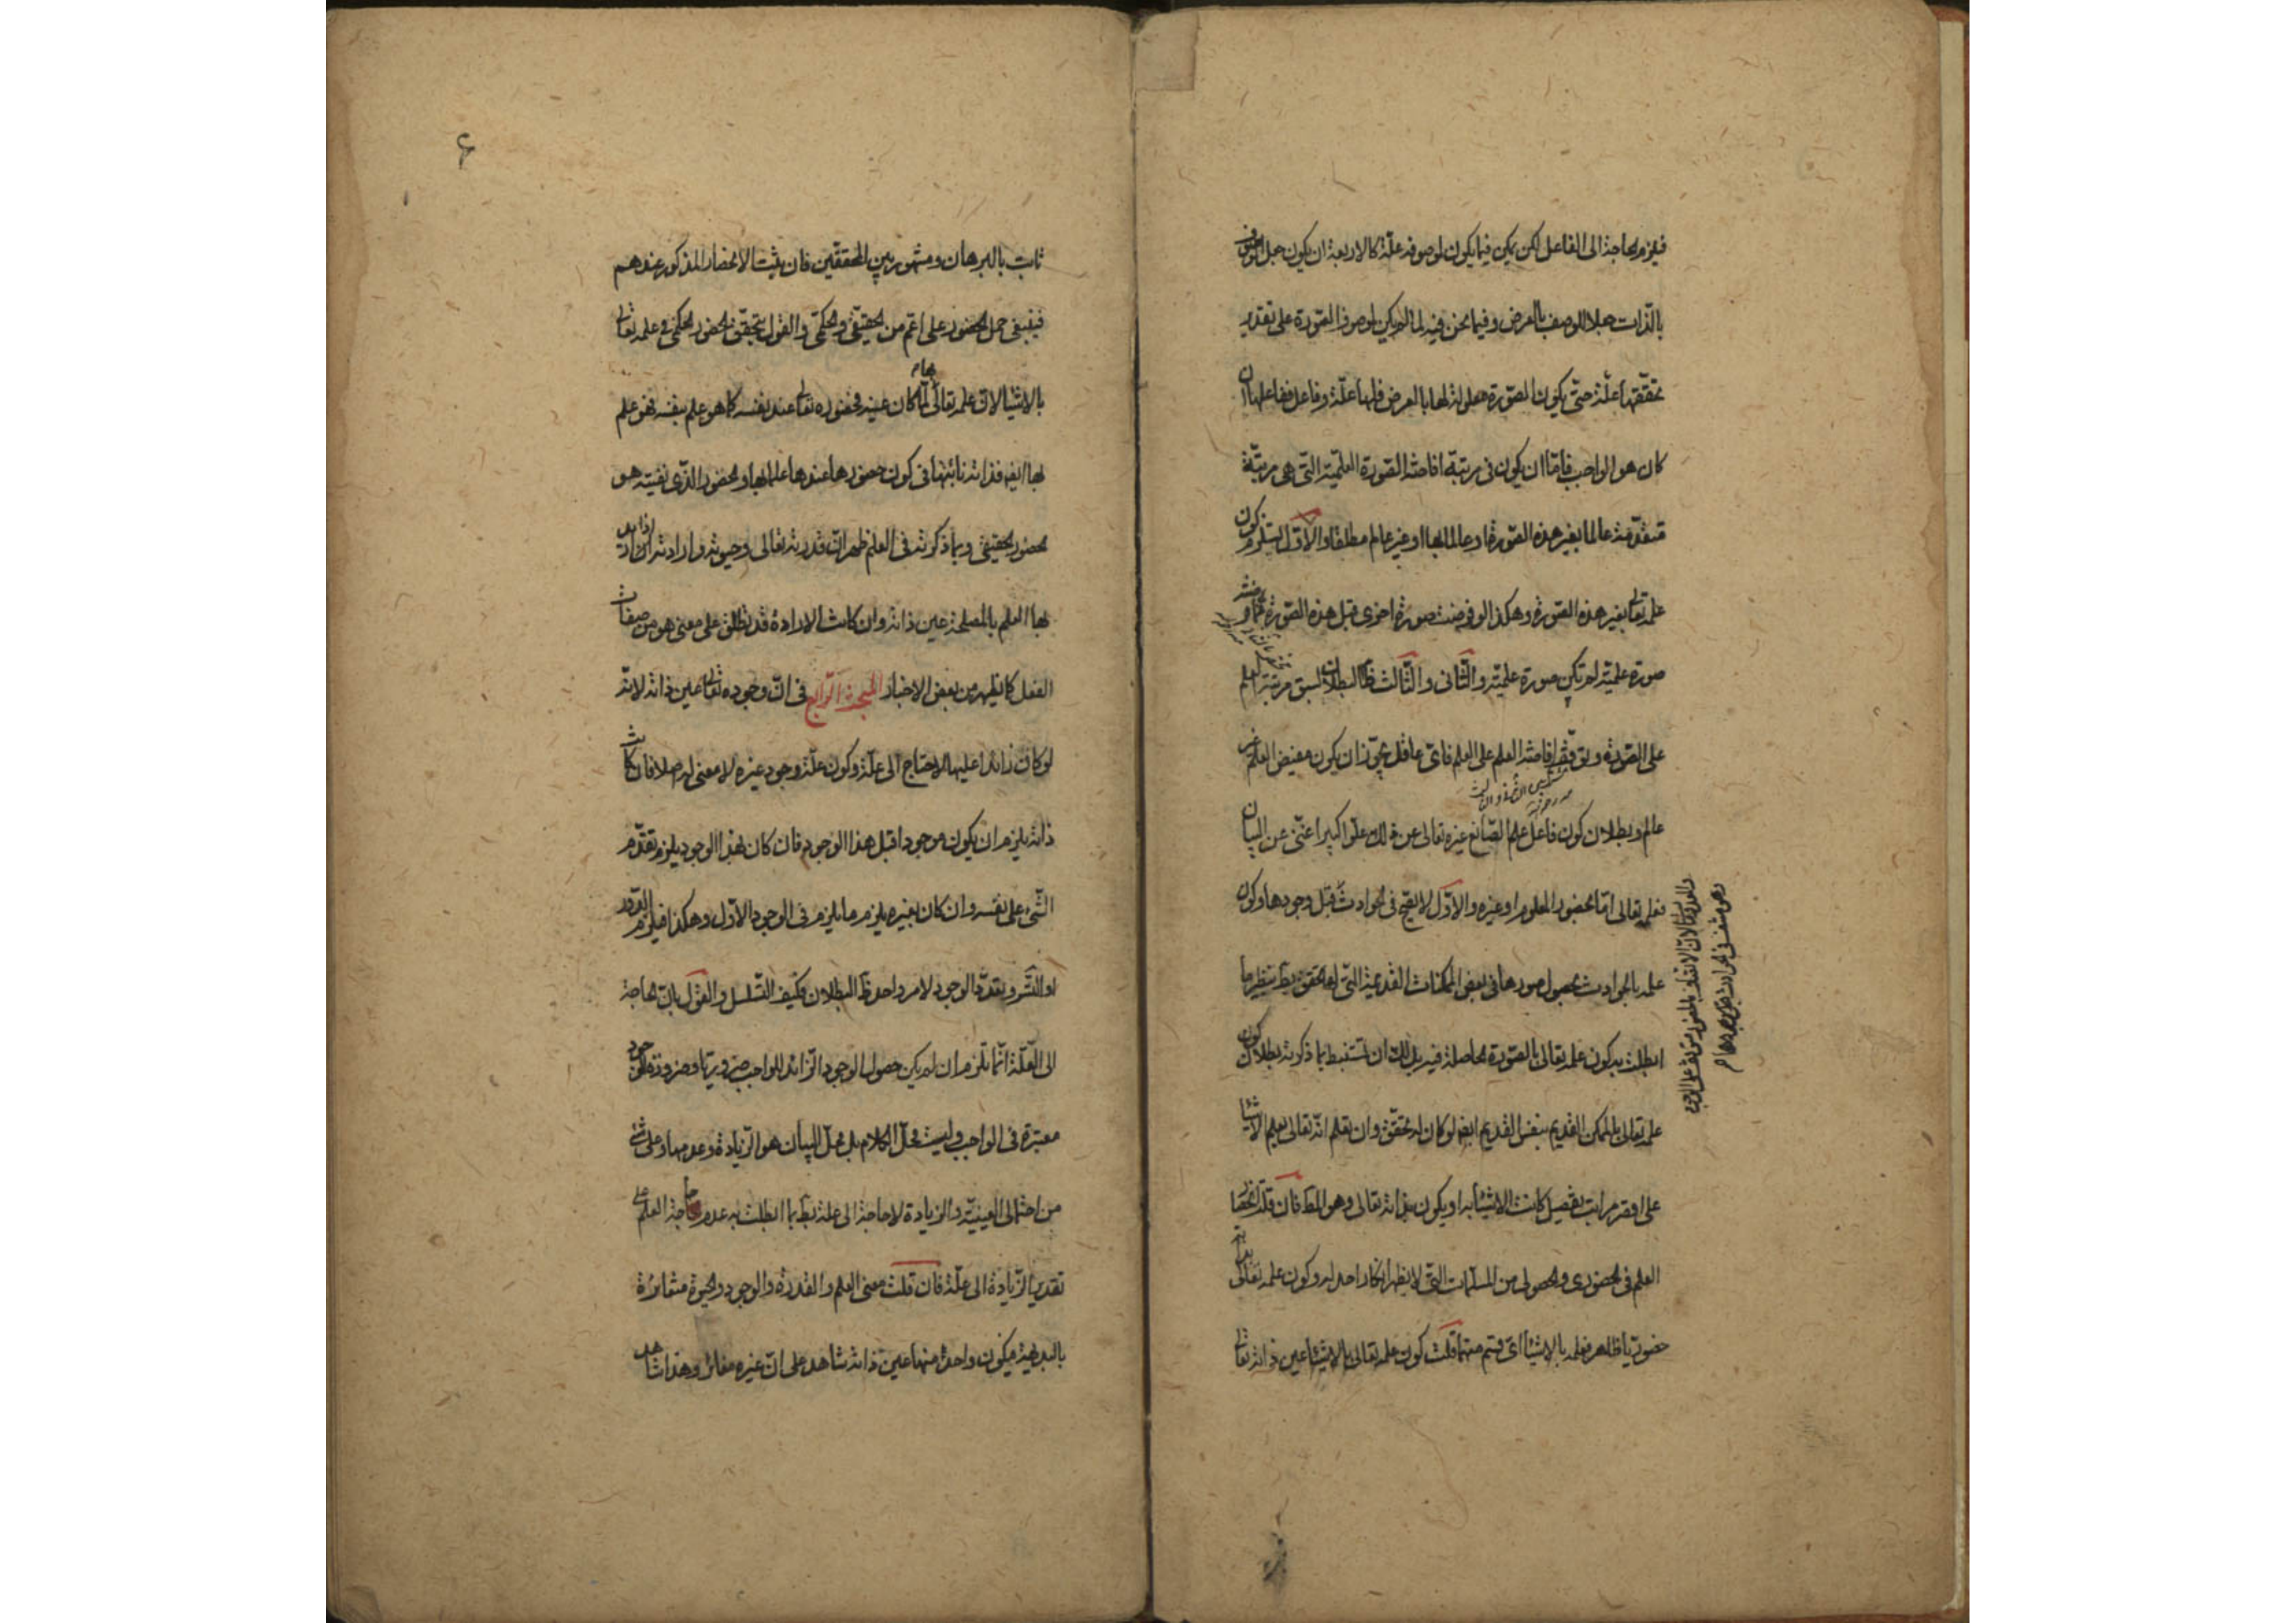 فيلزم الحاجة الى الفاعل لكن يمكن فيما يكون لموصوفه علّة كالاربعة ان يكون جعل الموصوف
بالذات جعلا للوصف بالعرض وفيما نحن فيه لما لم يكن لموصوف الصورة على تقدير
تحققها علّة حتى يكون الصورة معلولة لها بالعرض فلها علّة وفاعل ففاعلها ان
كان هو الواجب فامّا ان يكون فى مرتبة افاضة الصورة العلمية التى هى مرتبة
متقدّمة عالما بغير هذه الصورة او عالما بها او غير عالم مطلقا والاوّل يستلزم كون
علمه تعالى بغير هذه الصورة وهكذا لو فرضت صورة اخرى قبل هذه الصورة
صورة علمية لم تكن صورة علمية والثانى والثالث ظاهر البطلان لسبق مرتبة العلم
على الصورة وتوقّف افاضة العلم على العلم فاىّ عاقل يجوّز ان يكون مفيض العلم غير
عالم وبطلان كون فاعل علم الصانع غيره تعالى عن ذلك علوّا كبيرا غنىّ عن البيان
فعلمه تعالى امّا بحضور المعلوم او غيره والاوّل لا يصحّ فى الحوادث قبل وجودها وكون
علمه بالحوادث بحصول صورها فى بعض الممكنات القديمة التى لها تحقق يبطل بنظير ما
ابطلت به كون علمه تعالى بالصورة الحاصلة فيه بل لك ان تستنبط بما ذكرته بطلان كون
علمه تعالى بالممكن القديم بنفس القديم ايضا لو كان له تحقّق وان تعلم انّه تعالى يعلم الاشياء
على اوفر مراتب تفصيل كانت الاشياء به او يكون بذاته تعالى وهو المط فان قلت انحصار
العلم فى الحضورى والحصولى من المسلّمات التى لا يظهر انكار احد له وكون علمه تعالى بذاته
حضوريّا ظاهر فعلمه بالاشياء اىّ قسم منهما قلت كون علمه تعالى بالاشياء عين ذاته تعالى
وهو منتف فى الحوادث قبل وجودها
۶
ثابت بالبرهان ومشهور بين المحققين فان يثبت الانحصار المذكور عندهم
فينبغى حمل الحضور على اعم من الحقيقىّ والحكمىّ والقول بتحقّق الحضور الحكمىّ فى علمه تعالى
بالاشياء لانّ علمه تعالى لمّا كان عينه فحضوره تعالى عند نفسه كما هو علم بنفسه فهو علم
بها ايضا فذاته نائبها فى كون حضورها عندها علما بها والحضور الذى نفيته هو
الحضور الحقيقى وبما ذكرته فى العلم ظهر ان قدرته تعالى وحيوته وارادته اذا اريد
بها العلم بالمصلحة عين ذاته وان كانت الارادة قد تطلق على معنى هو من صفات
الفعل كما يظهر من بعض الاخبار المبحث الرّابع فى انّ وجوده تعالى عين ذاته لانّه
لو كان زائدا عليها لاحتاج الى علّة وكون علّة وجود غيره لا معنى له اصلا فان كانت
ذاته يلزم ان يكون موجودا قبل هذا الوجود فان كان بهذا الوجود يلزم تقدّم
الشىء على نفسه وان كان بغيره يلزم ما يلزم فى الوجود الاوّل وهكذا فيلزم الدور
او التسّ وتعدّد الوجود لامر واحد ظ البطلان فكيف التسلسل والقول بانّ الحاجة
الى العلّة انّما تلزم ان لم يكن حصول الوجود الزائد للواجب ضروريّا وضرورة الوجود
معتبرة فى الواجب وليست محلّ الكلام بل محلّ البيان هو الزيادة وعدمها وعلى شئ
من احتمالى العينيّة والزيادة لا حاجة الى علة يبطل بما ابطلت به عدم حاجة العلم على
تقدير الزّيادة الى علّة فان قلت معنى العلم والقدرة والوجود والحيوة متغايرة
بالبديهة فيكون واحد منها عين ذاته شاهد على انّ غيره مغائر وهذا شاهد